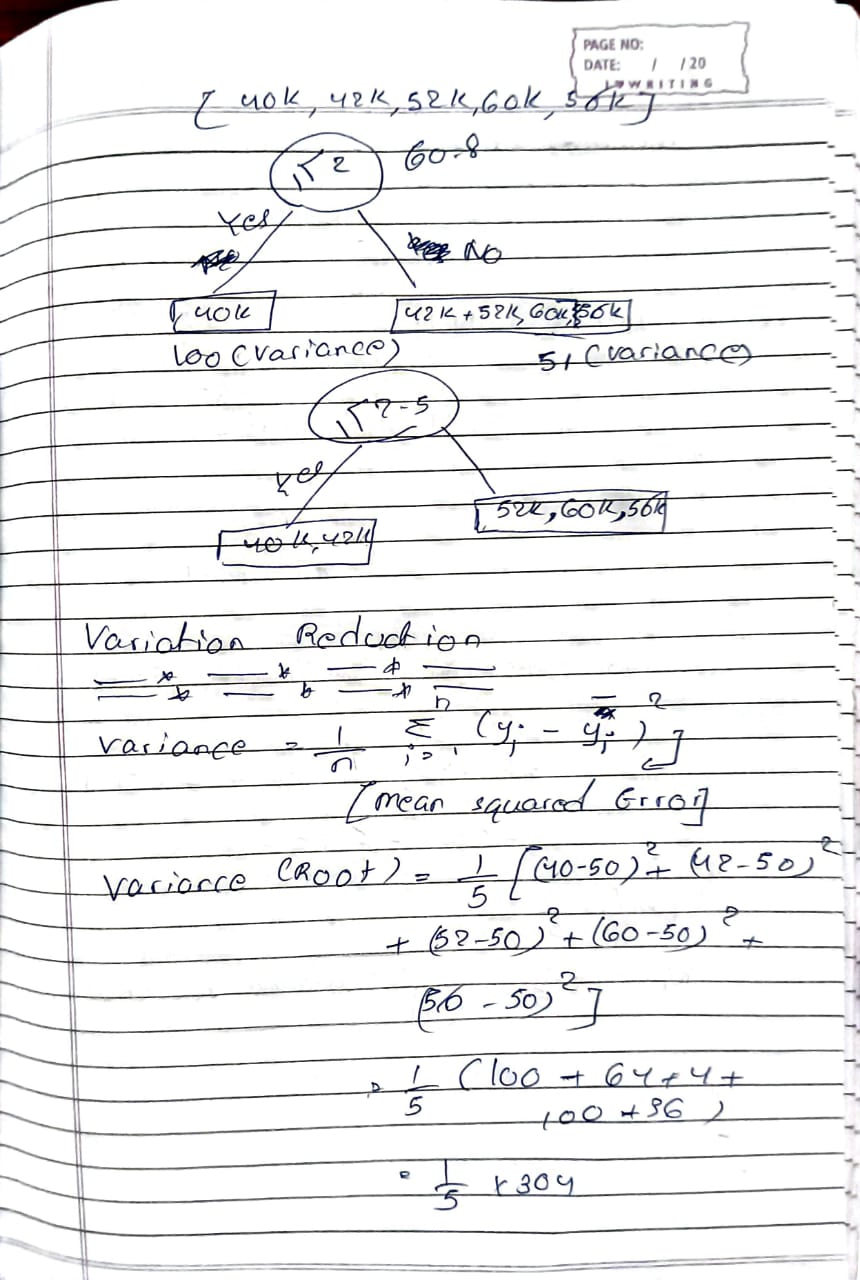 PAGE NO:
DATE: / /20
WRITING
[40K, 42K, 52K, 60K, 56K]
≤ 2 60.8
Yes No
40K 42K + 52K, 60K, 56K
100 (variance) 51 (variance)
≤ 2.5
Yes
52K, 60K, 56K
40K, 42K
Variation Reduction
variance = 1/n Σ i=1 n (yi - ȳ)²]
[mean squared Error]
Variance (Root) = 1/5 [(40-50)² + (42-50)²
+ (52-50)² + (60-50)² +
(56 - 50)²]
= 1/5 (100 + 64 + 4 +
100 + 36)
= 1/5 × 304